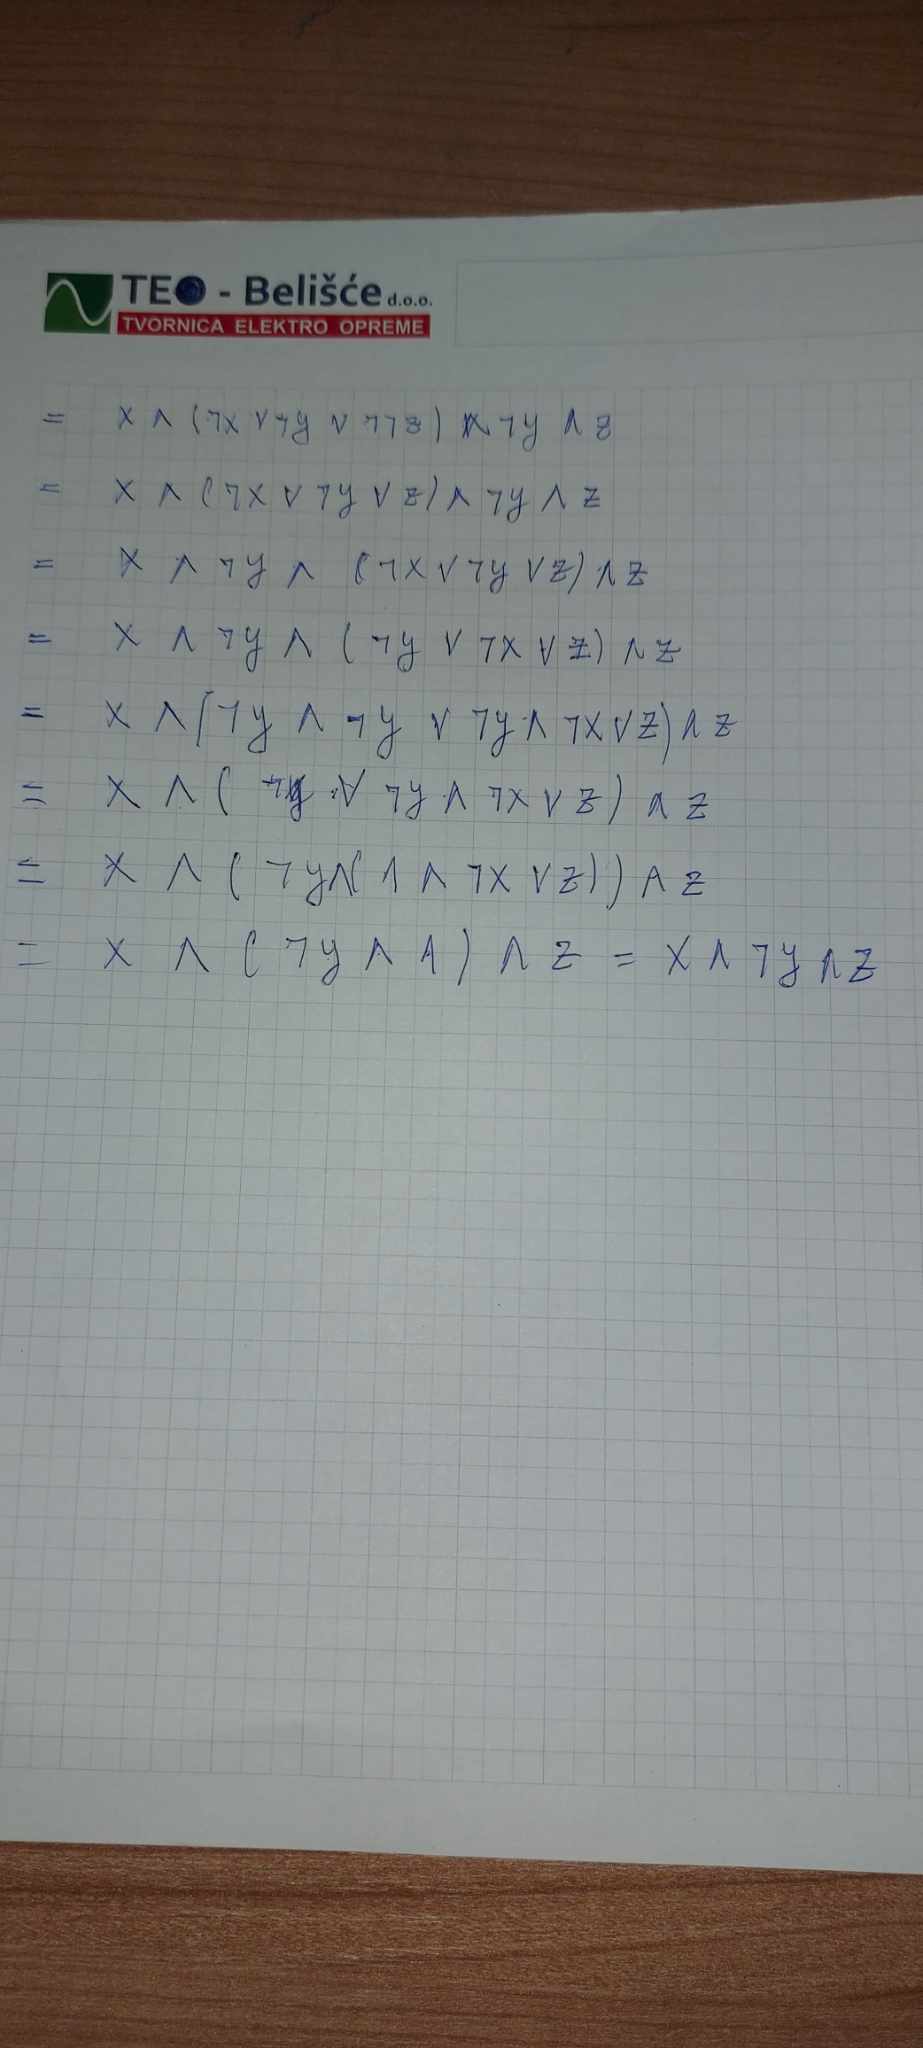 TEO - Belišće d.o.o.
TVORNICA ELEKTRO OPREME
= x ∧ (¬x ∨ ¬y ∨ ¬¬z) ∧ ¬y ∧ z
= x ∧ (¬x ∨ ¬y ∨ z) ∧ ¬y ∧ z
= x ∧ ¬y ∧ (¬x ∨ ¬y ∨ z) ∧ z
= x ∧ ¬y ∧ (¬y ∨ ¬x ∨ z) ∧ z
= x ∧ (¬y ∧ ¬y ∨ ¬y ∧ ¬x ∨ z) ∧ z
= x ∧ (¬y ∨ ¬y ∧ ¬x ∨ z) ∧ z
= x ∧ (¬y ∧ (1 ∧ ¬x ∨ z)) ∧ z
= x ∧ (¬y ∧ 1) ∧ z = x ∧ ¬y ∧ z